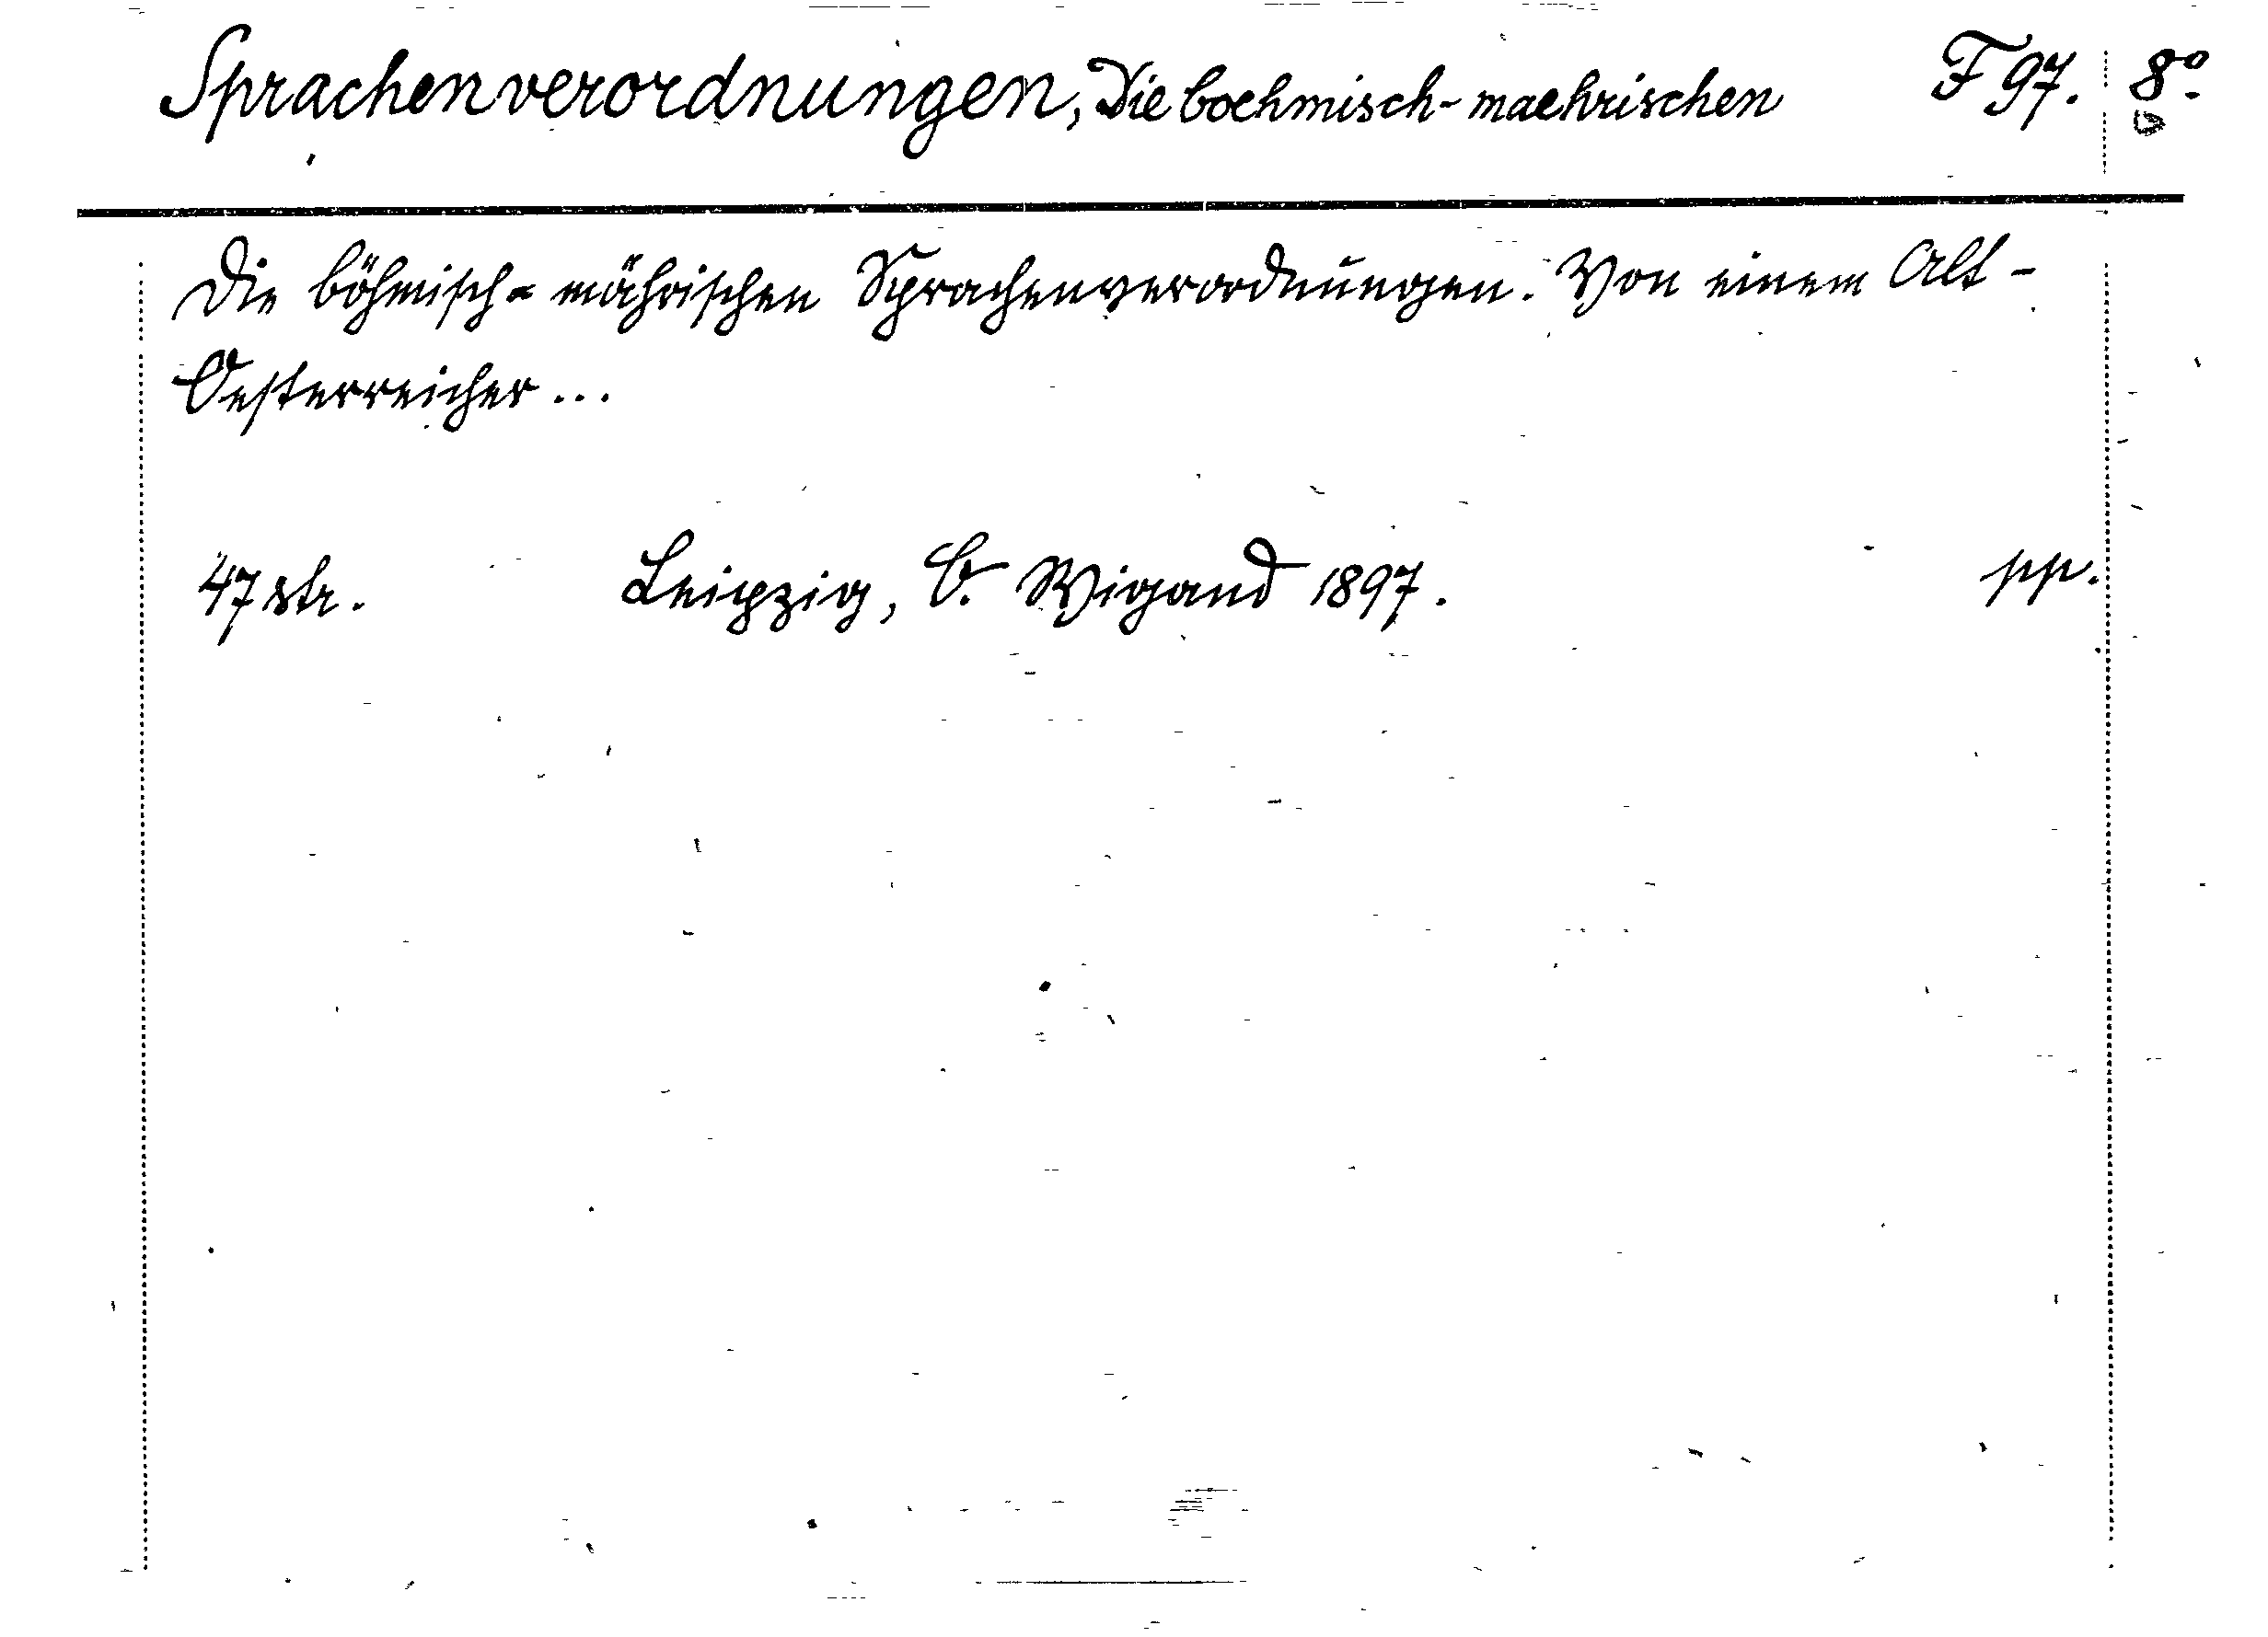 Sprachenverordnungen, Die boehmisch-maehrischen F 97. 8°
Die böhmisch-mährischen Sprachenverordnungen. Von einem Alt-
Oesterreicher...
47 str. Leipzig, O. Wigand 1897. pp.